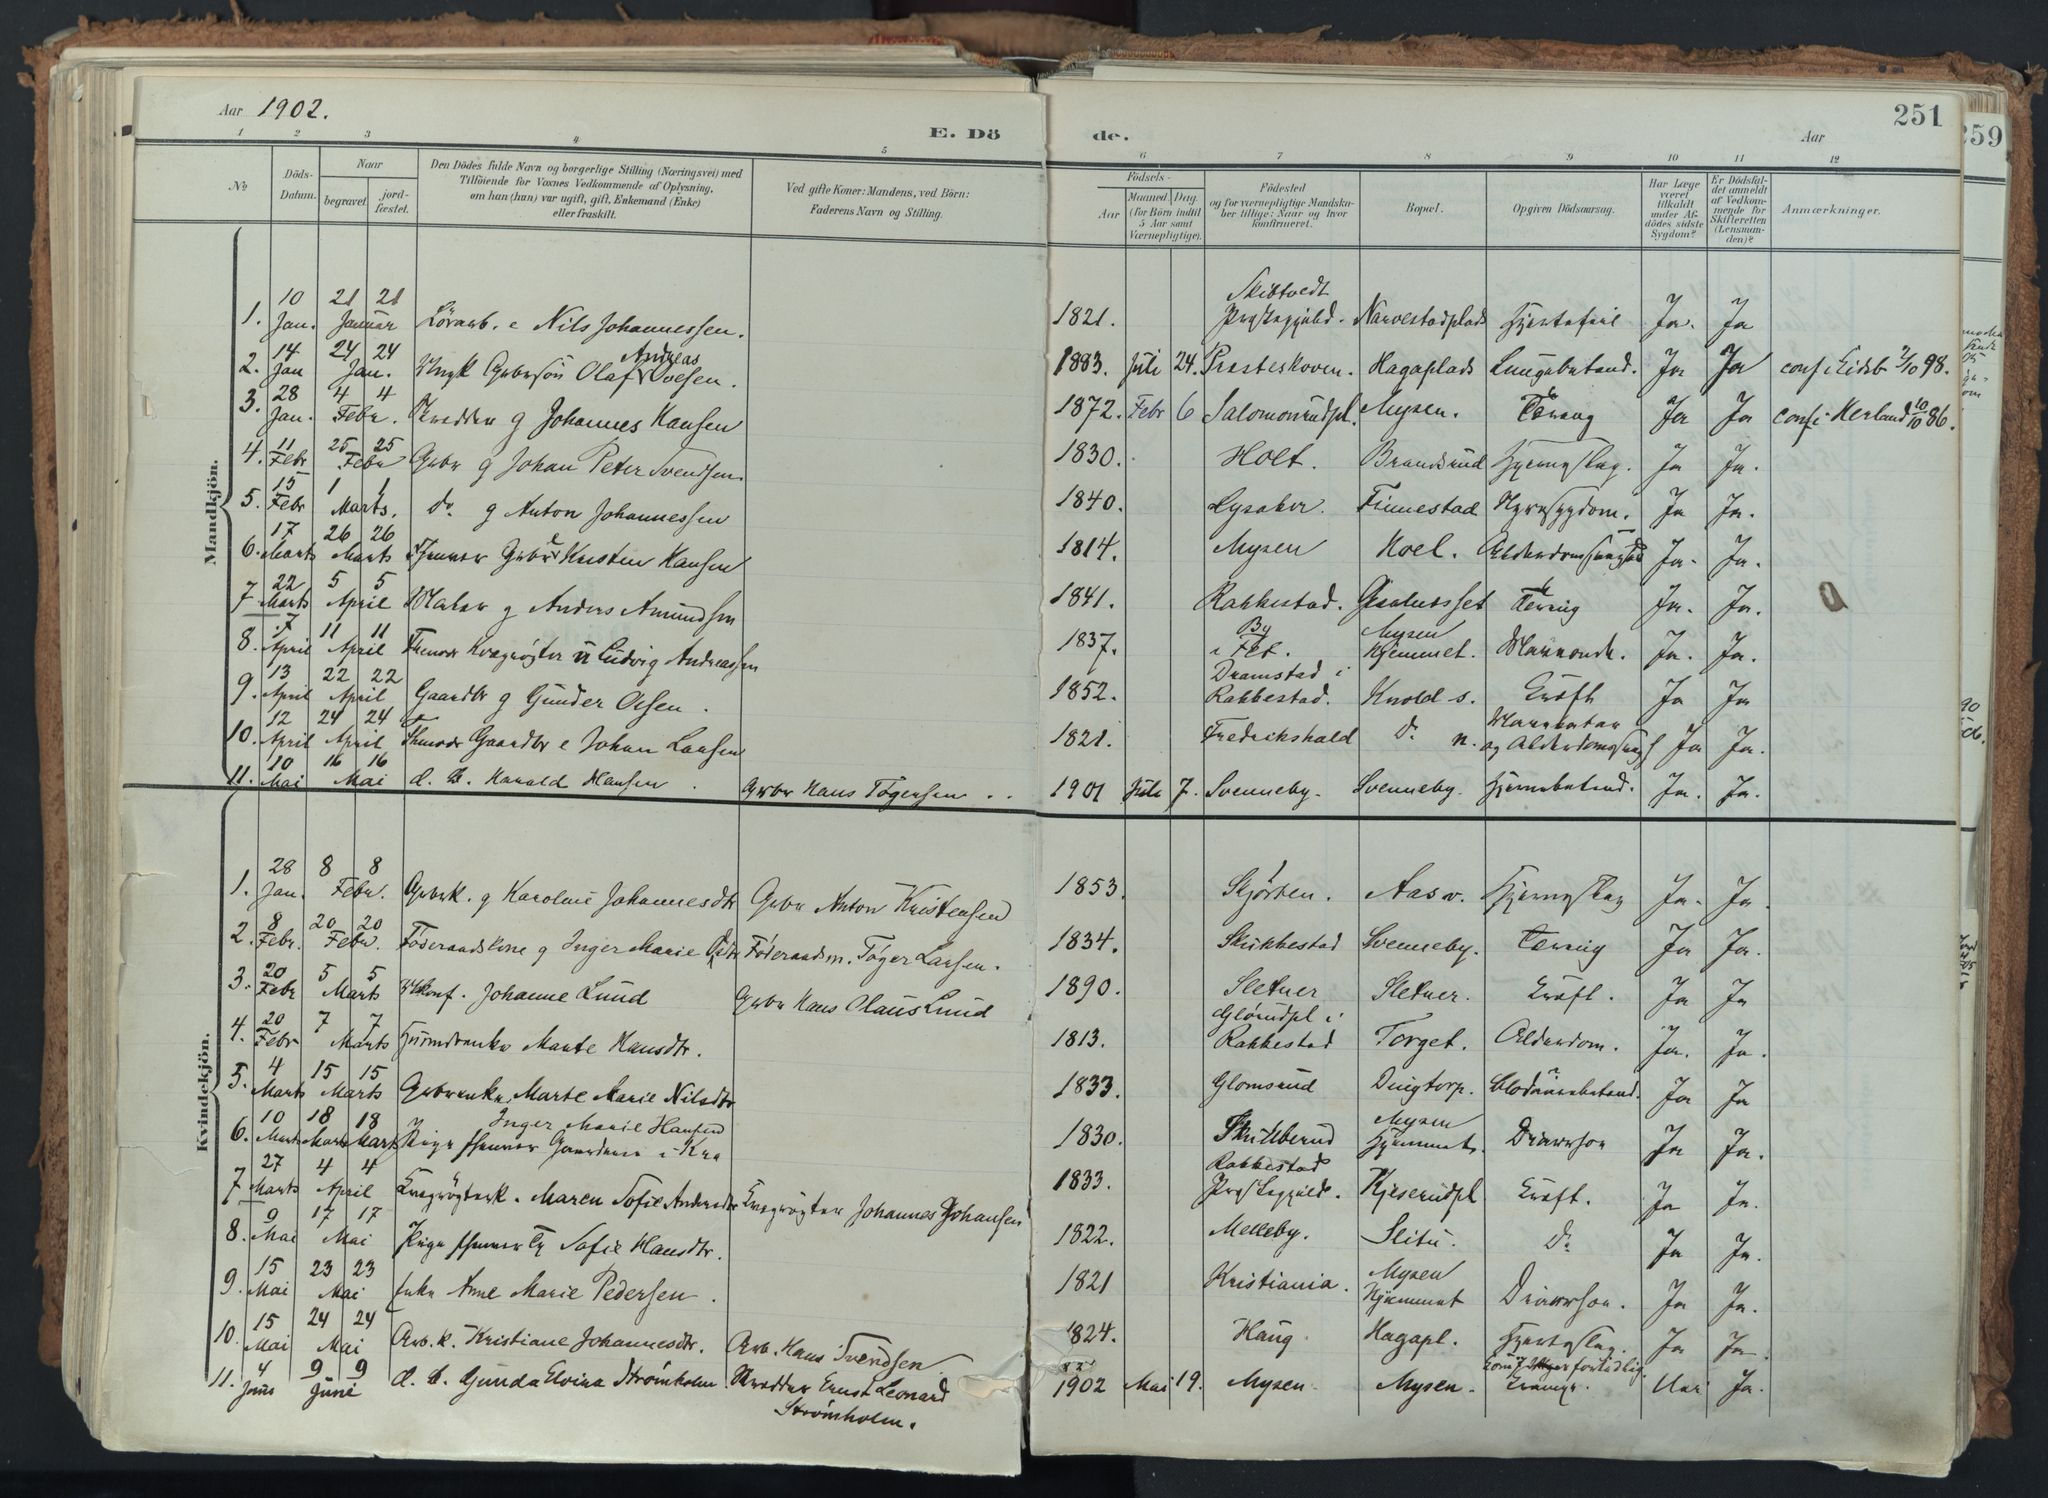 Aar 1902.
E. Dö
de.
Aar
251
259
1 2 3 4 5 6 7 8 9 10 11 12
No
Döds-
Datum.
Naar
begravet.
jord-
fæstet.
Den Dödes fulde Navn og borgerlige Stilling (Næringsvei) med
Tilföiende for Voxnes Vedkommende af Oplysning,
om han (hun) var ugift, gift, Enkemand (Enke)
eller fraskilt.
Ved gifte Koner: Mandens, ved Börn:
Faderens Navn og Stilling.
Födsels-
Aar
Maaned. Dag.
(for Börn indtil
5 Aar samt
Værnepligtige).
Födested
og for værnepligtige Mandska-
ber tillige: Naar og hvor
konfirmeret.
Bopæl.
Opgiven Dödsaarsag.
Har Læge
været
tilkaldt
under Af-
dödes sidste
Sygdom?
Er Dödsfal-
det anmeldt
af Vedkom-
mende for
Skifteretten
(Lensman-
den)?
Anmærkninger.
Mandkjön.
1. 10 Jan. 21 21 Januar Nils Johannessen. 1821. Skibtvedt Præstegjæld. Narvestadplads Hjertefeil Ja. Ja
2. 14 Jan 24 24 Jan. Olaf Andreas Ovesen. 1883. Juli 24. Prasteskoven. Hagaplads Lungebetænd. Ja Ja conf i Eidsb 2/10 98.
3. 28 Jan. 4 4 Febr. Skrædder g Johannes Hansen 1872. Febr 6 Salomonrudpl. Mysen. Tæring Ja Ja conf i Herland 10/10 86.
4. 11 Febr 25 25 Febr Gbr g Johan Peter Svendsen. 1830. Holt. Brandsrud Hjerneslag. Ja Ja.
5. 15 Febr 1 1 Marts. do g Anton Johannessen 1840. Lysaker. Finnestad Nyresygdom. Ja Ja.
6. 17 Marts 26 26 Marts Kristen Hansen 1814. Mysen Noel. Ja. Ja.
7 22 Marts 5 5 April Maler g Anders Amundsen 1841. Rakkestad. Tæring Ja. Ja.
8. 7 April 11 11 April Ludvig Andreassen 1837. By i Fet. Mysen Hjemmet. Ja. Ja.
9. 13 April 22 22 April Gaardbr g Gunder Olsen. 1852. Dramstad i Rakkestad. Knold s. Kræft Ja Ja
10. 12 April 24 24 April Gaardbr e Johan Larsen 1821. Fredrikshald do n. og Alderdomssvagh Ja Ja.
11. 10 Mai 16 16 Mai d. B. Harald Hansen. Gbr Hans Tøgersen. 1901 Juli 7. Svenneby. Svenneby. Hjernebetænd. Ja. Ja.
Kvindekjön.
1. 28 Jan. 8 8 Febr. Gbrk. g Karoline Johannesdtr Gbr Anton Kristensen 1853. Skjørten. Aas v. Hjerneslag Ja. Ja.
2. 8 Febr. 20 20 Febr. Føderaadskone g Inger Marie Føderaadsm. Tøger Larsen. 1834. Skukkestad Svenneby. Tæring Ja Ja.
3. 20 Febr 5 5 Marts Johanne Lund Gbr Hans Olaus Lund 1890. Sletner Sletner. Kræft. Ja Ja
4. 20 Febr 7 7 Marts Marte Hansdtr. 1813. Glørudpl i Rakkestad Torget. Alderdom. Ja. Ja.
5. 4 Marts 15 15 Marts Gbrenke Marte Marie Nilsdtr 1833. Glomsrud Duigtorp. Ja Ja
6. 10 Marts 18 18 Marts Marts Pige Inger Marie Hansen i Kra 1830. Skulberud Mysen Hjemmet. Ja Ja.
7 27 Marts 4 4 April Kvægrøgterk. Maren Sofie Andersdtr Kvægrøgter Johannes Johansen 1833. Rakkestad Præstegjæld. Kjeserudpl Kræft. Ja Ja.
8. 9 Mai 17 17 Mai Pige Sofie Hansdtr. 1822. Melleby. Slitu. do Ja Ja.
9. 15 Mai 23 23 Mai Enke Anne Marie Pedersen. 1821 Kristiania. Mysen Hjemmet Ja Ja.
10. 15 Mai 24 24 Mai Arb. k. Kristiane Johannesdtr. Arb. Hans Svendsen 1824. Haug Hagapl. Hjerteslag. Ja Ja.
11. 4 Juni 9 9 Juni d. B. Gunda Elvina Strømholm. Skrædder Ernst Leonard
Strømholm. 1902 Mai 19. Mysen. Mysen. for tidlig Nei Ja.